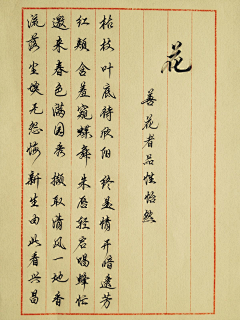 花
善花者品性怡然
枯枝叶底待欣阳 终显情开暗透芳
红颊含羞窥蝶舞 朱唇轻启唱蜂忙
邀来春色满园秀 撷取清风一地香
流落尘埃无怨悔 新生由此看兴昌